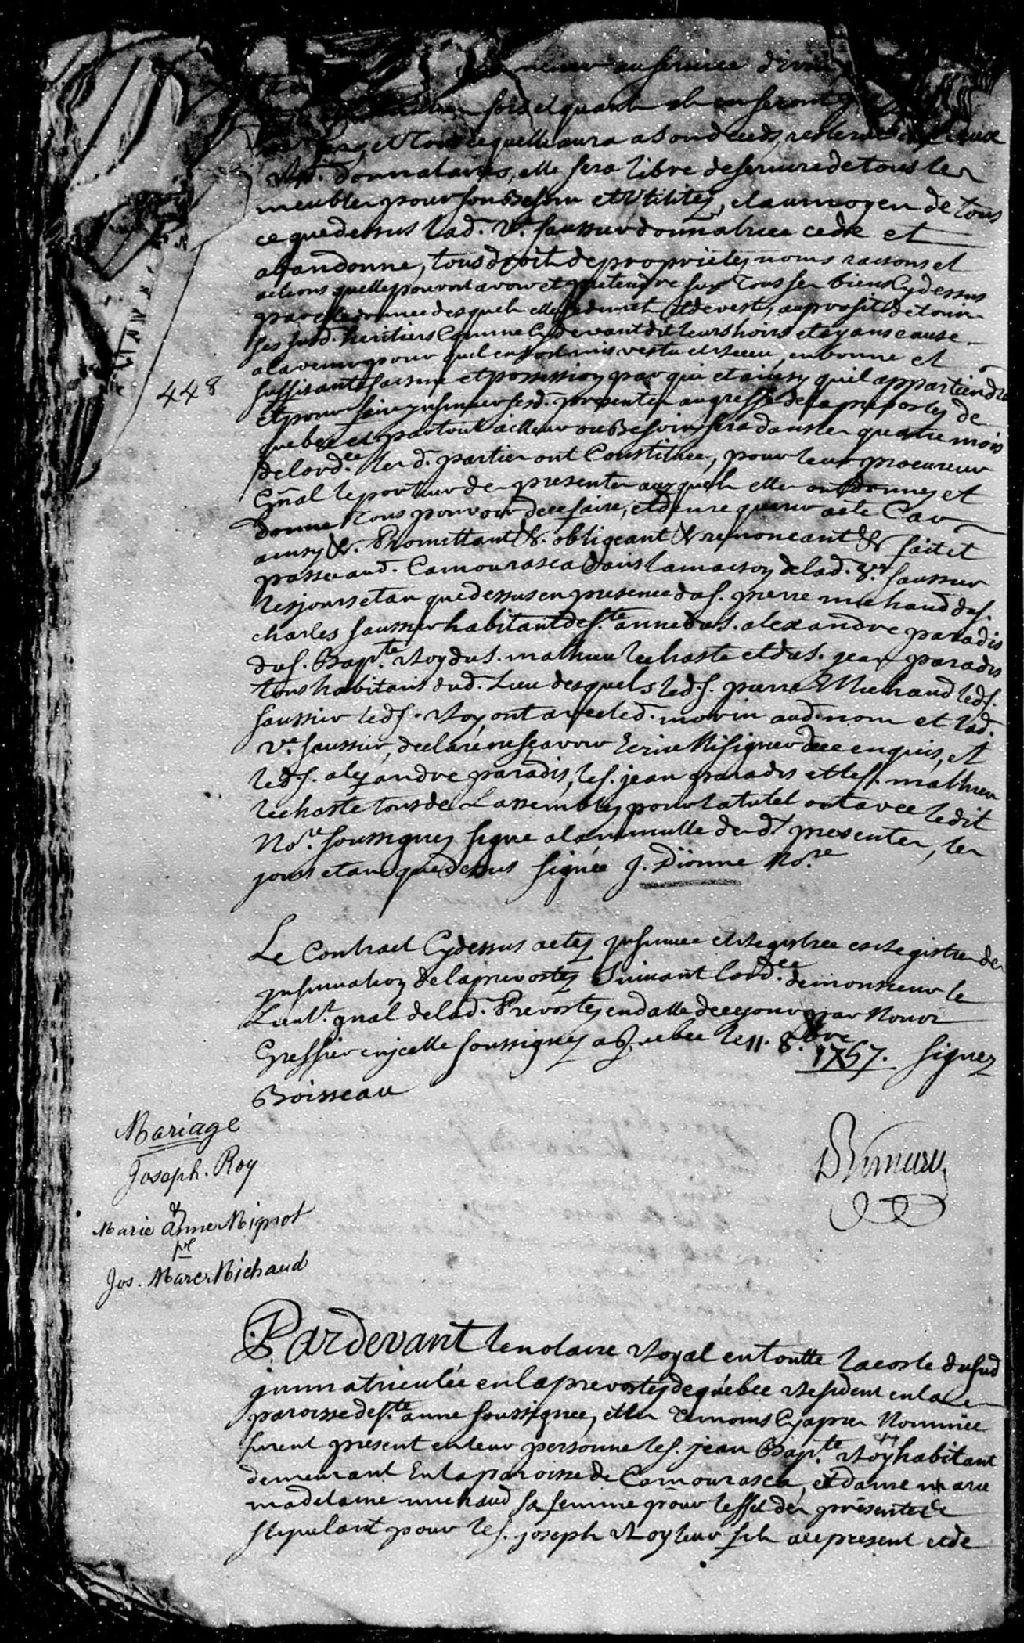 au service divin
fois et quant
et tout ce quelle aura a son deceds restera
donnataires, elle sera libre de se servir de tous les
meubles pour son Besoin et Utilitez, et au moyen de tous
ce que dessus lad. Ve. saussier donnatrice cede et
abandonne, tous droit de proprietez noms raisons et
actions quelle pouroit avoir et pretendre sur Tous ses biens Cy dessus
par elle donnée desquels elle se demet et devestes au profit de tous
ses susd. heritiers Comme Cy devant dit leurs hoirs et ayans cause
a lavenir pour quil en soit mis vestu et en bonne et
suffisante saisine et possession par qui et ainsy quil appartiendra
448
et pour faire jnsinuer ces d. presentes au greffe de la prevostez de
quebec et partout ailleur ou Besoin sera dans les quatre mois
de lord.ce les d. parties ont Constituée, pour leur procureur
Gnal le porteur des presentes auquel elle ont donnez et
donne tous pouvoir de ce faire, et den requerir acte Car
ainsy &. Promettant &. obligeant & renoncant & fait et
passé aud. Camourasca dans la maison de lad. Ve. saussier
les jours et an que dessus en presence du s. pierre michaud du s.
charles saussier habitant de ste anne du s. alexandre paradis
du s. Bapte. Roy du s. mathieu lechaste et du s. jean paradis
tous habitans dud. Lieu desquels led. s. pierre Michaud led s.
saussier led s. Roy ont avec led. morin aud. nom et lad.
Ve. saussier, declaré ne scavoir Ecrire Ni signer de ce enquis, et
led. s. alexandre paradis, le s. jean paradis et le s. mathieu
lechaste tous de Lassemblez pour la tutel ont avec ledit
Nore. soussignez signe a la minutte des dt presentes, les
jours et an que dessus signée J. Dionne Nore
Le Contract Cy dessus a etez jnsinuée et Registrée es Registre des
jnsinuation de la prevostez Suivant Lordce de monsieur le
Lieut. gnal de lad. Prevostez en datte de ce jour par Nous
Greffier en jcelle soussignez a Quebec le 11. 8bre 1757. signez
Boisseau
Mariage
Joseph. Roy
&
Marie Anne Mignot
pl
Jos. Marc Michaud
Pardevant le notaire Royal en toutte la coste du sud
jmmatriculée en la prevostez de québec Resident en la
paroisse de ste anne soussignee, et les temoins Cy apres Nommée
furent present en leur personne le s. jean Bapte. Roy habitant
demeurant En la paroisse de Camourasca, et dame marie
madelaine michaud sa femme pour leffet des presentes
stipulant pour le s. joseph Roy leur fils a ce present et de